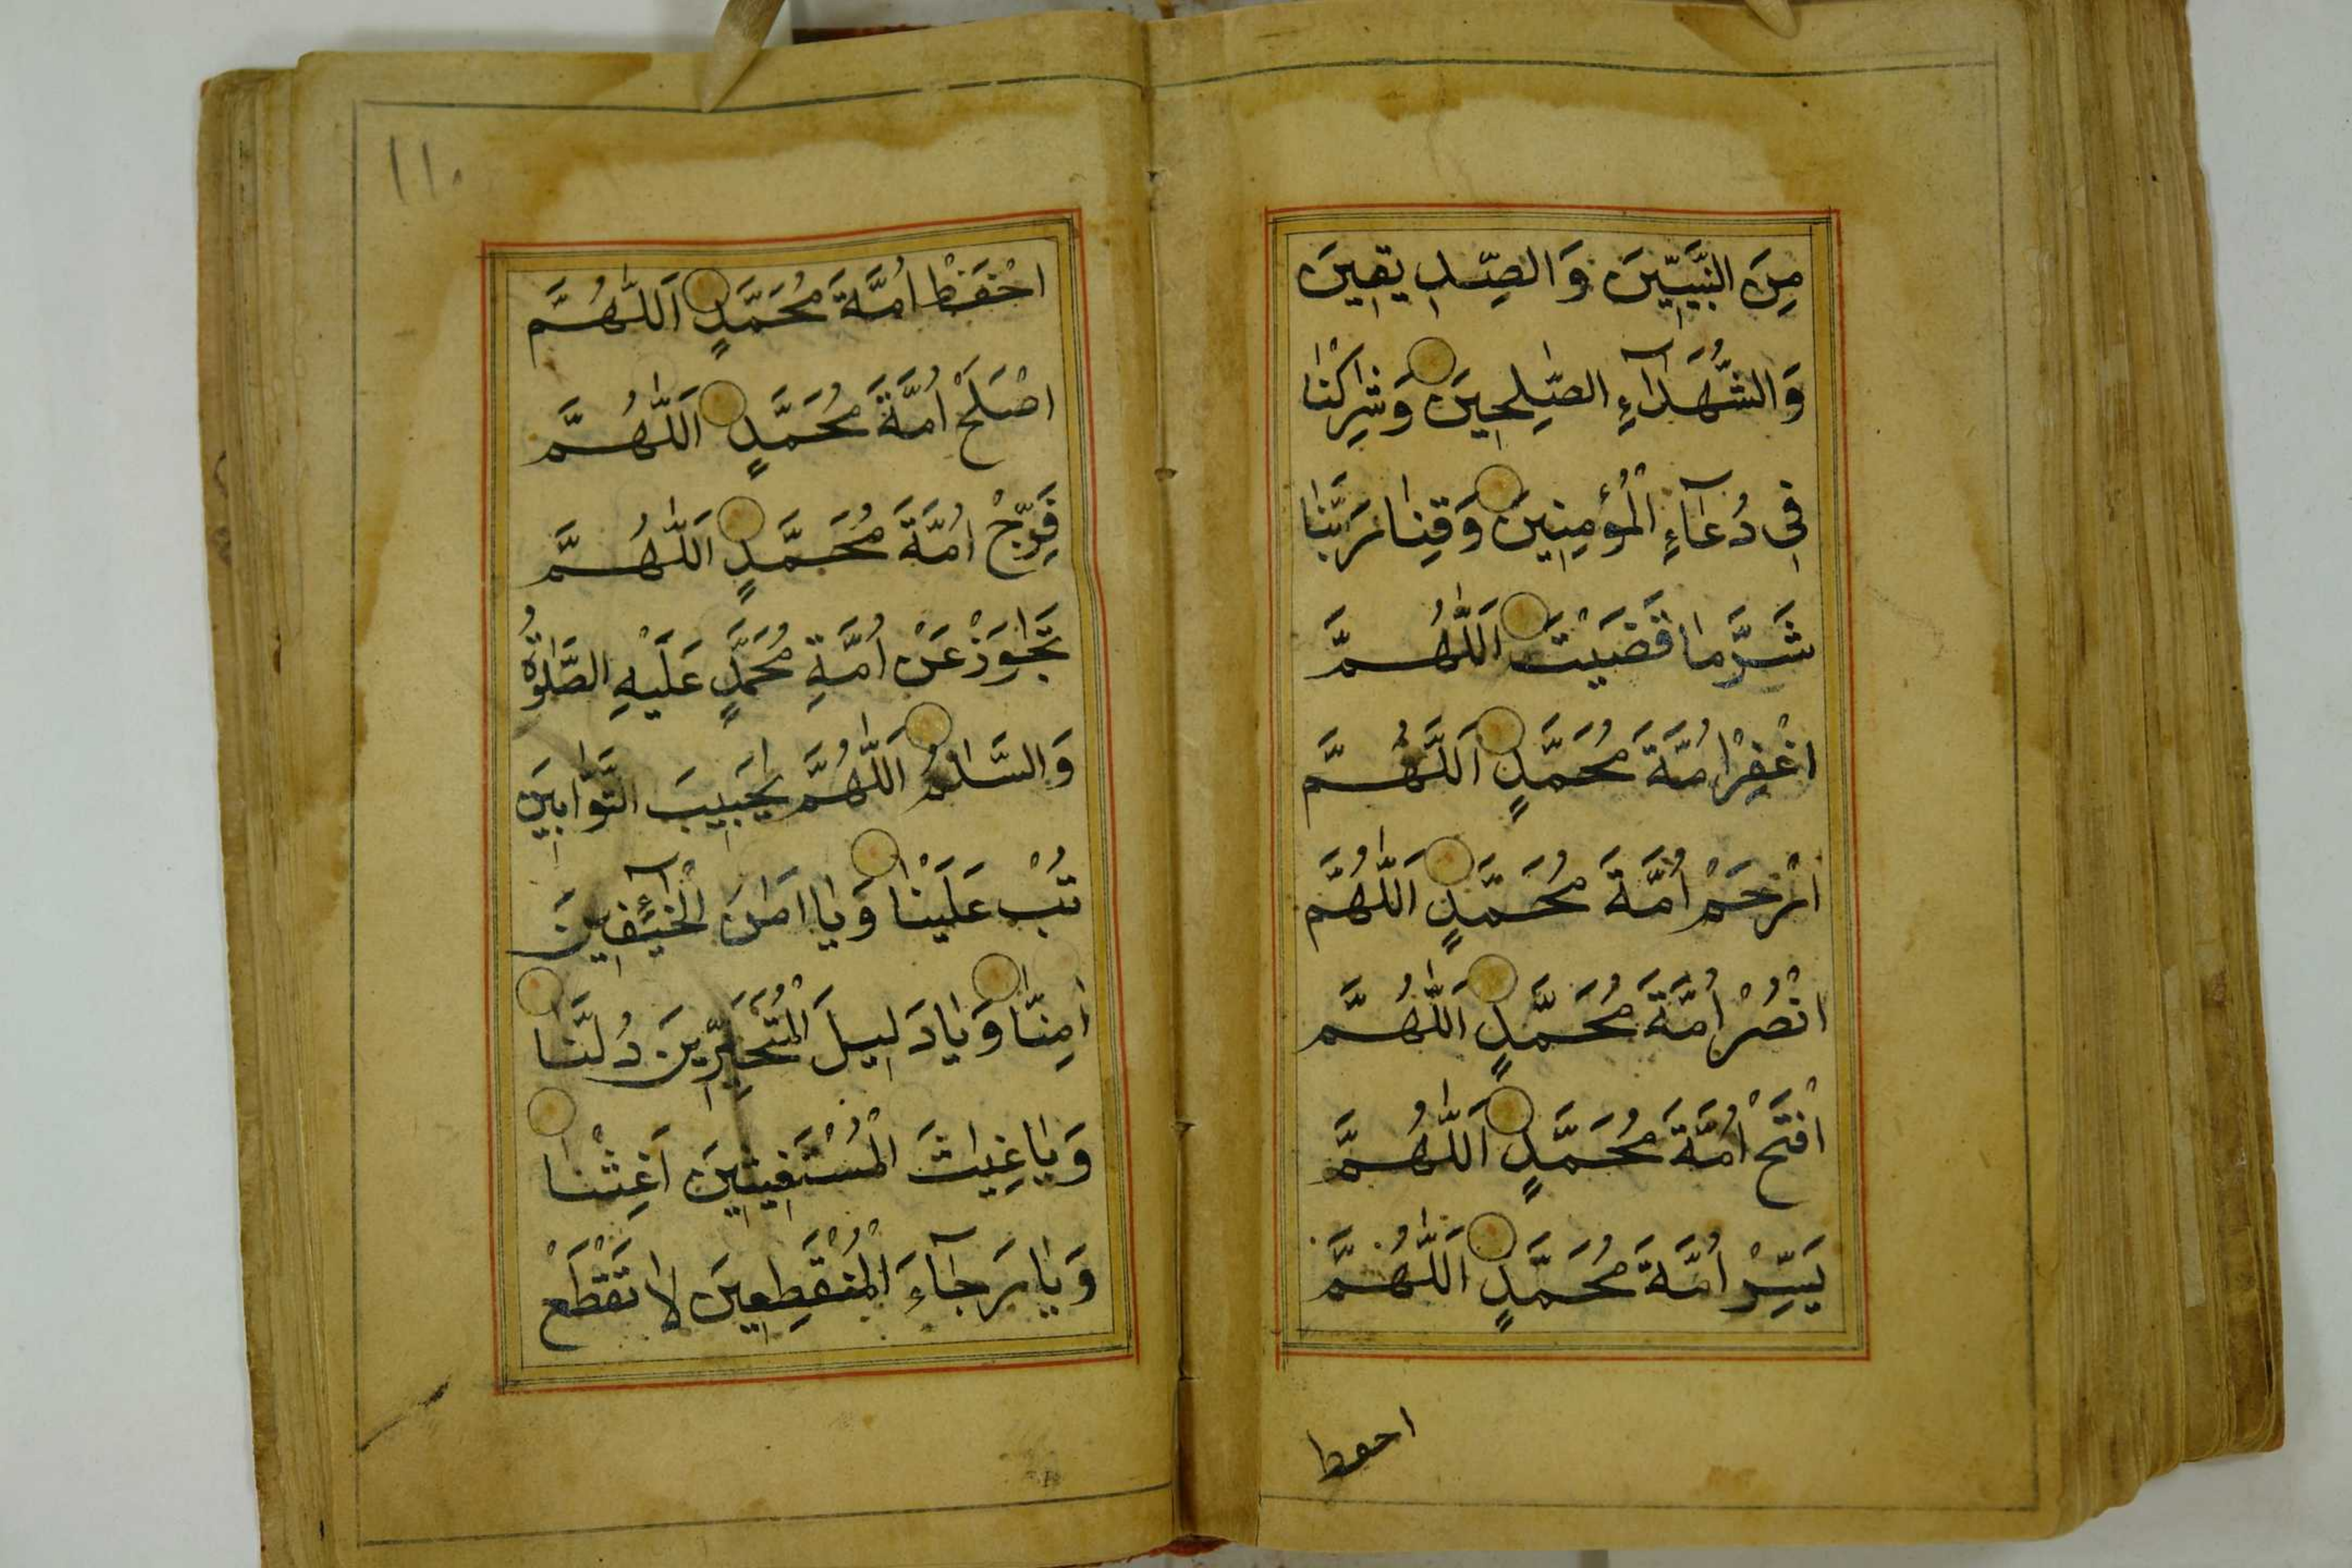 مِنَ النَّبِيّٖنَ وَالصِّدِّيقٖينَ
وَالشُّهَدَآءِ الصّٰلِحٖينَ وَشَرِكْنٰا
فٖى دُعَآءِ الْمُؤْمِنٖينَ وَقِنٰا رَبَّنٰا
شَرَّ مٰا قَضَيْتَ اَللّٰهُمَّ
اغْفِرْ اُمَّةَ مُحَمَّدٍ اَللّٰهُمَّ
ارْحَمْ اُمَّةَ مُحَمَّدٍ اَللّٰهُمَّ
انْصُرْ اُمَّةَ مُحَمَّدٍ اَللّٰهُمَّ
افْتَحْ اُمَّةَ مُحَمَّدٍ اَللّٰهُمَّ
يَسِّرْ اُمَّةَ مُحَمَّدٍ اَللّٰهُمَّ
احفظ
١١٠
احْفَظْ اُمَّةَ مُحَمَّدٍ اَللّٰهُمَّ
اصْلَحْ اُمَّةَ مُحَمَّدٍ اَللّٰهُمَّ
فَرِّجْ اُمَّةَ مُحَمَّدٍ اَللّٰهُمَّ
تَجٰاوَزْ عَنْ اُمَّةِ مُحَمَّدٍ عَلَيْهِ الصَّلٰوةُ
وَالسَّلٰامُ اَللّٰهُمَّ يٰاحَبٖيبَ التَّوّٰابٖينَ
تُبْ عَلَيْنٰا وَيٰا اَمٰنَ الْخٰآئِفٖينَ
اٰمِنّٰا وَيٰا دَلٖيلَ الْمُتَحَيِّرٖينَ دُلَّنٰا
وَيٰا غِيٰاثَ الْمُسْتَغٖيثٖينَ اَغِثْنٰا
وَيٰا رَجٰآءَ الْمُنْقَطِعٖينَ لٰا تَقْطَعْ